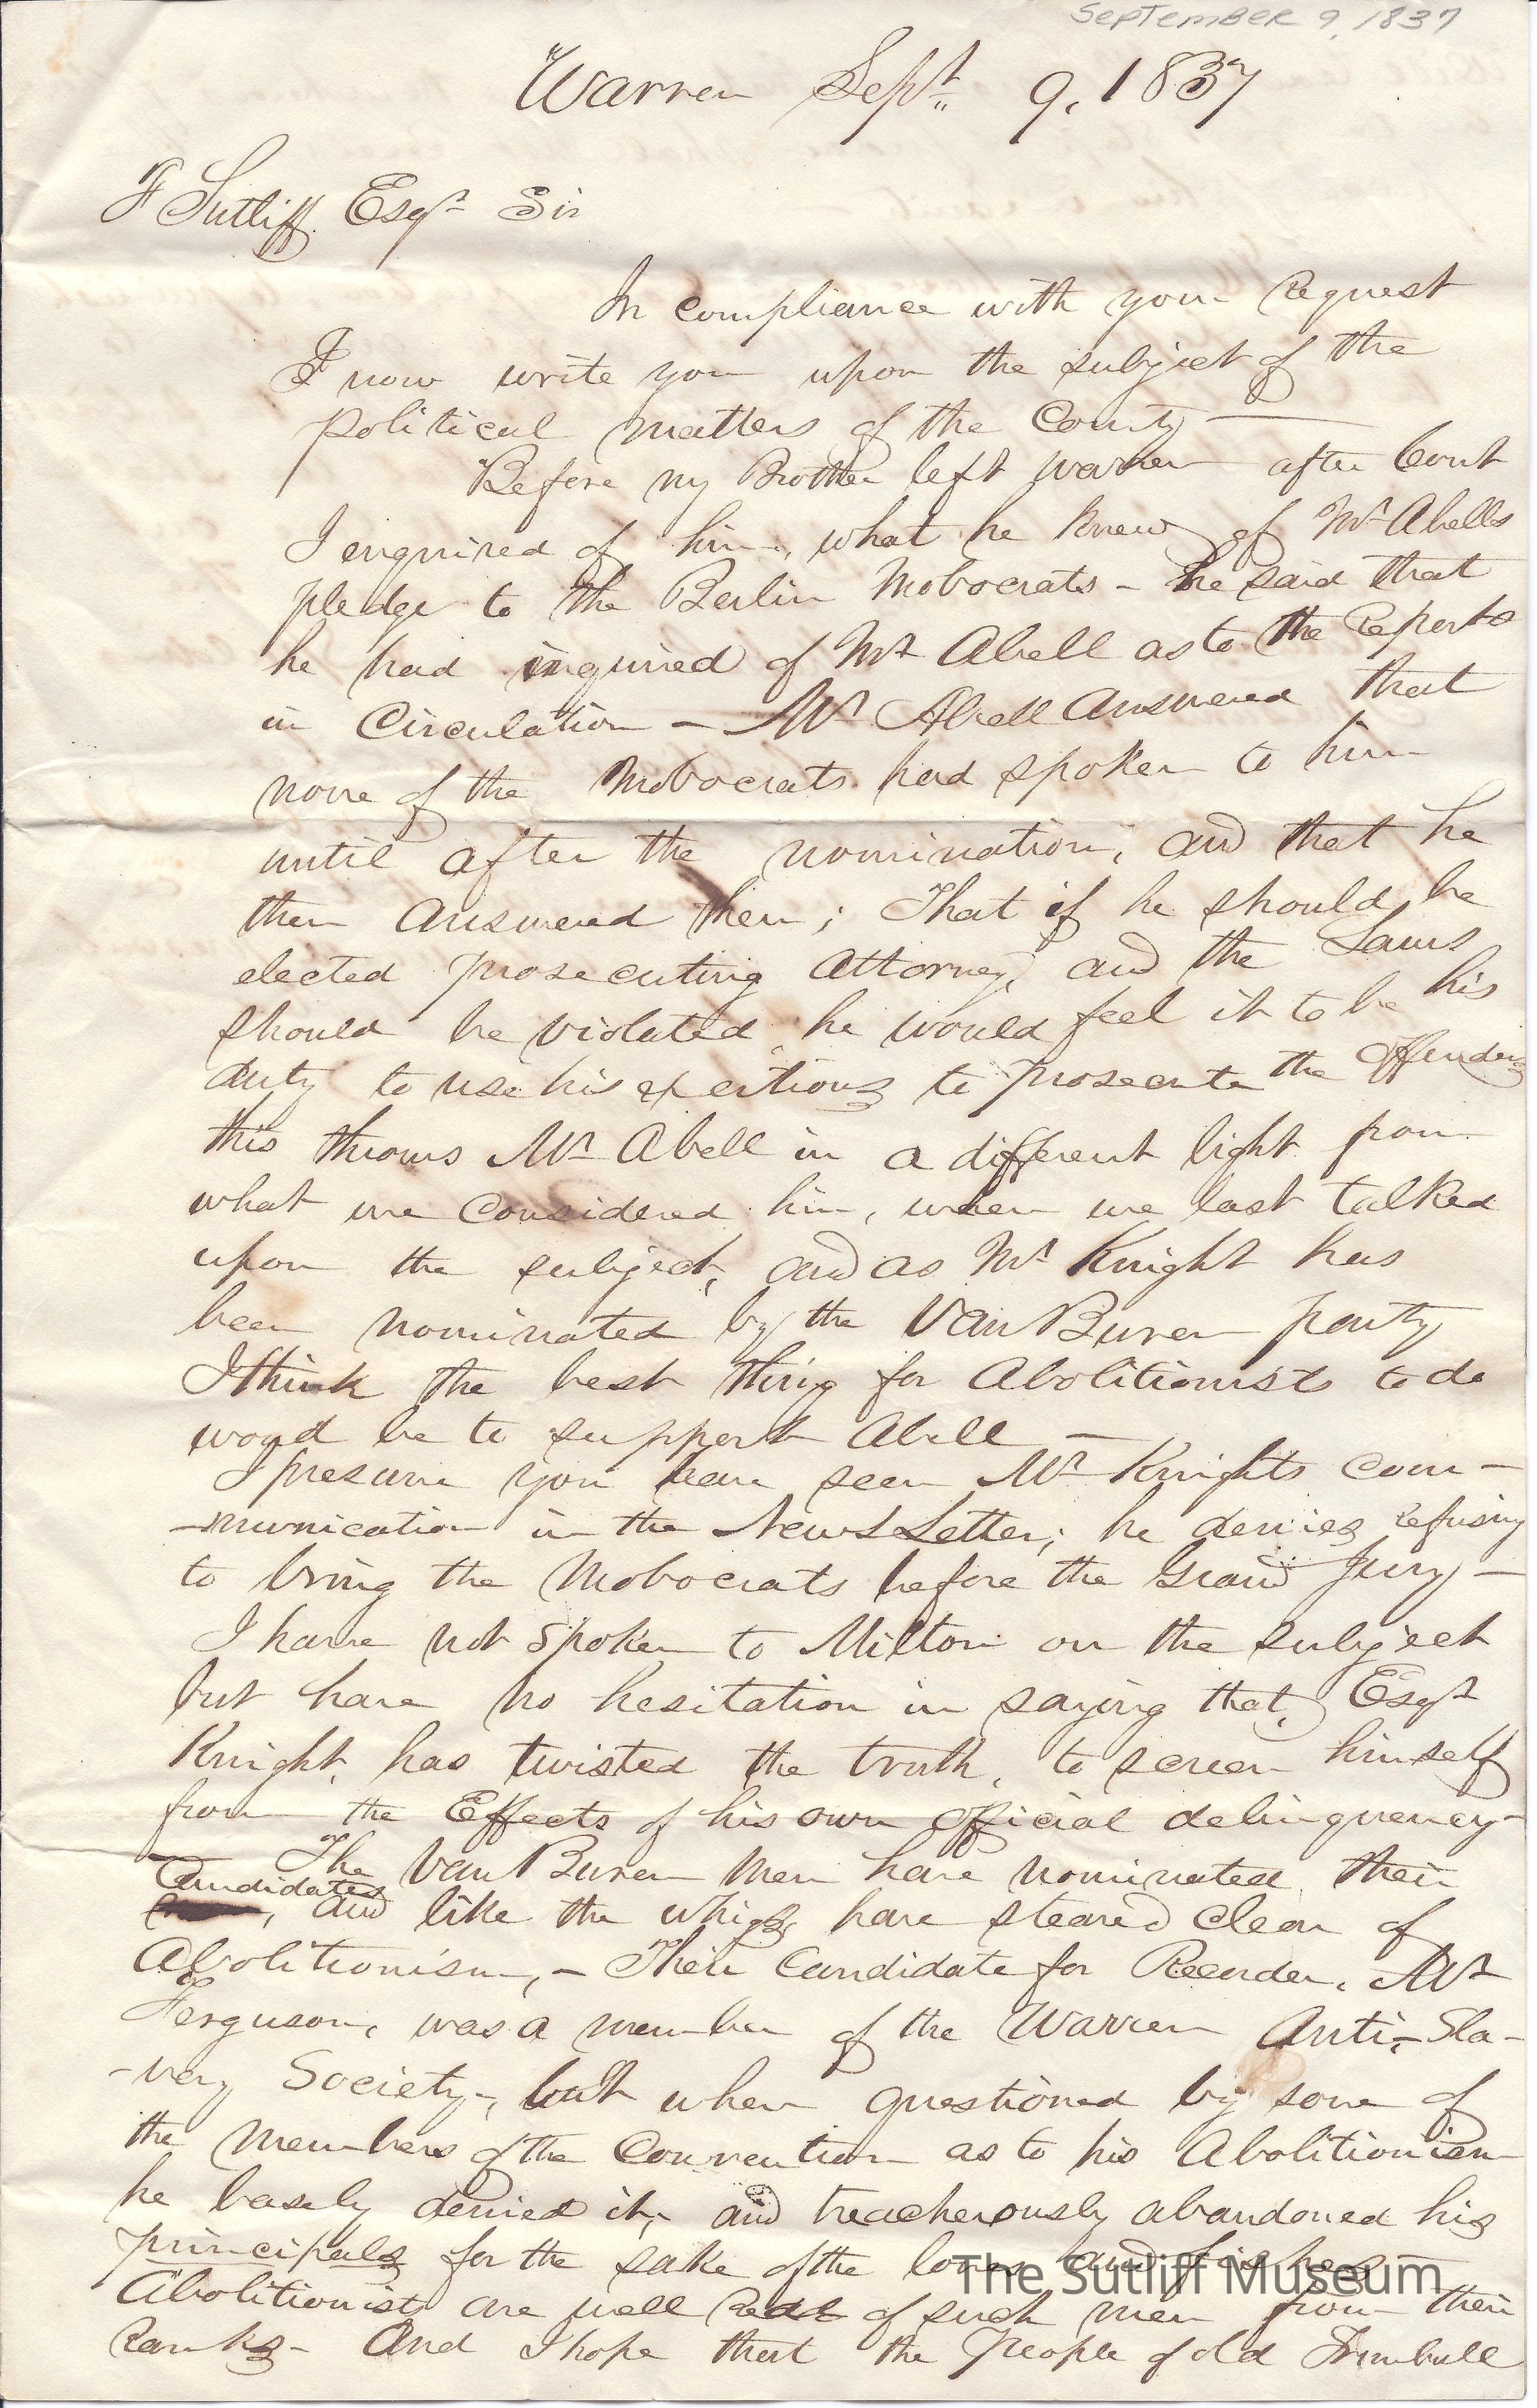 September 9, 1837
Warren Sept. 9, 1837
F Sutliff Esqr Sir
In compliance with your Request
I now write you upon the subject of the
political matters of the County —
Before my Brother left warren after Court
I enquired of him, what he knew of Mr Abells
pledge to the Berlin Mobocrats - he said that
he had inquired of Mr Abell as to the Reports
in Circulation - Mr Abell Answered that
none of the Mobocrats had spoken to him
until after the nomination, and that he
then Answered them; That if he should be
elected prosecuting Attorney, and the Laws
should be violated he would feel it to be his
duty to use his exertions to prosecute the offenders
this throws Mr Abell in a different light from
what we Considered him, when we last talked
upon the subject, and as Mr Knight has
been nominated by the Van Buren party
I think the best thing for Abolitionists to do
would be to support Abell —
I presume you have seen Mr Knights com-
-munication in the News Letter; he denies Refusing
to bring the Mobocrats before the Grand Jury —
I have not spoken to Milton on the subject
but have no hesitation in saying that, Esqr
Knight, has twisted the truth, to screen himself
from the Effects of his own official delinquency-
The Van Buren Men have nominated their
Candidates, and like the whigs have steared clear of
Abolitionism, - Their Candidate for Recorder, Mr
Ferguson, was a member of the Warren Anti-Sla-
-very Society-, but when questioned by some of
the Members of the Convention as to his Abolitionism
he basely denied it, and treacherously abandoned his
principals for the sake of the loves and fishes —
Abolitionists are well Red of such men from their
Ranks- And I hope that the People of old Trumbull
The Sutliff Museum